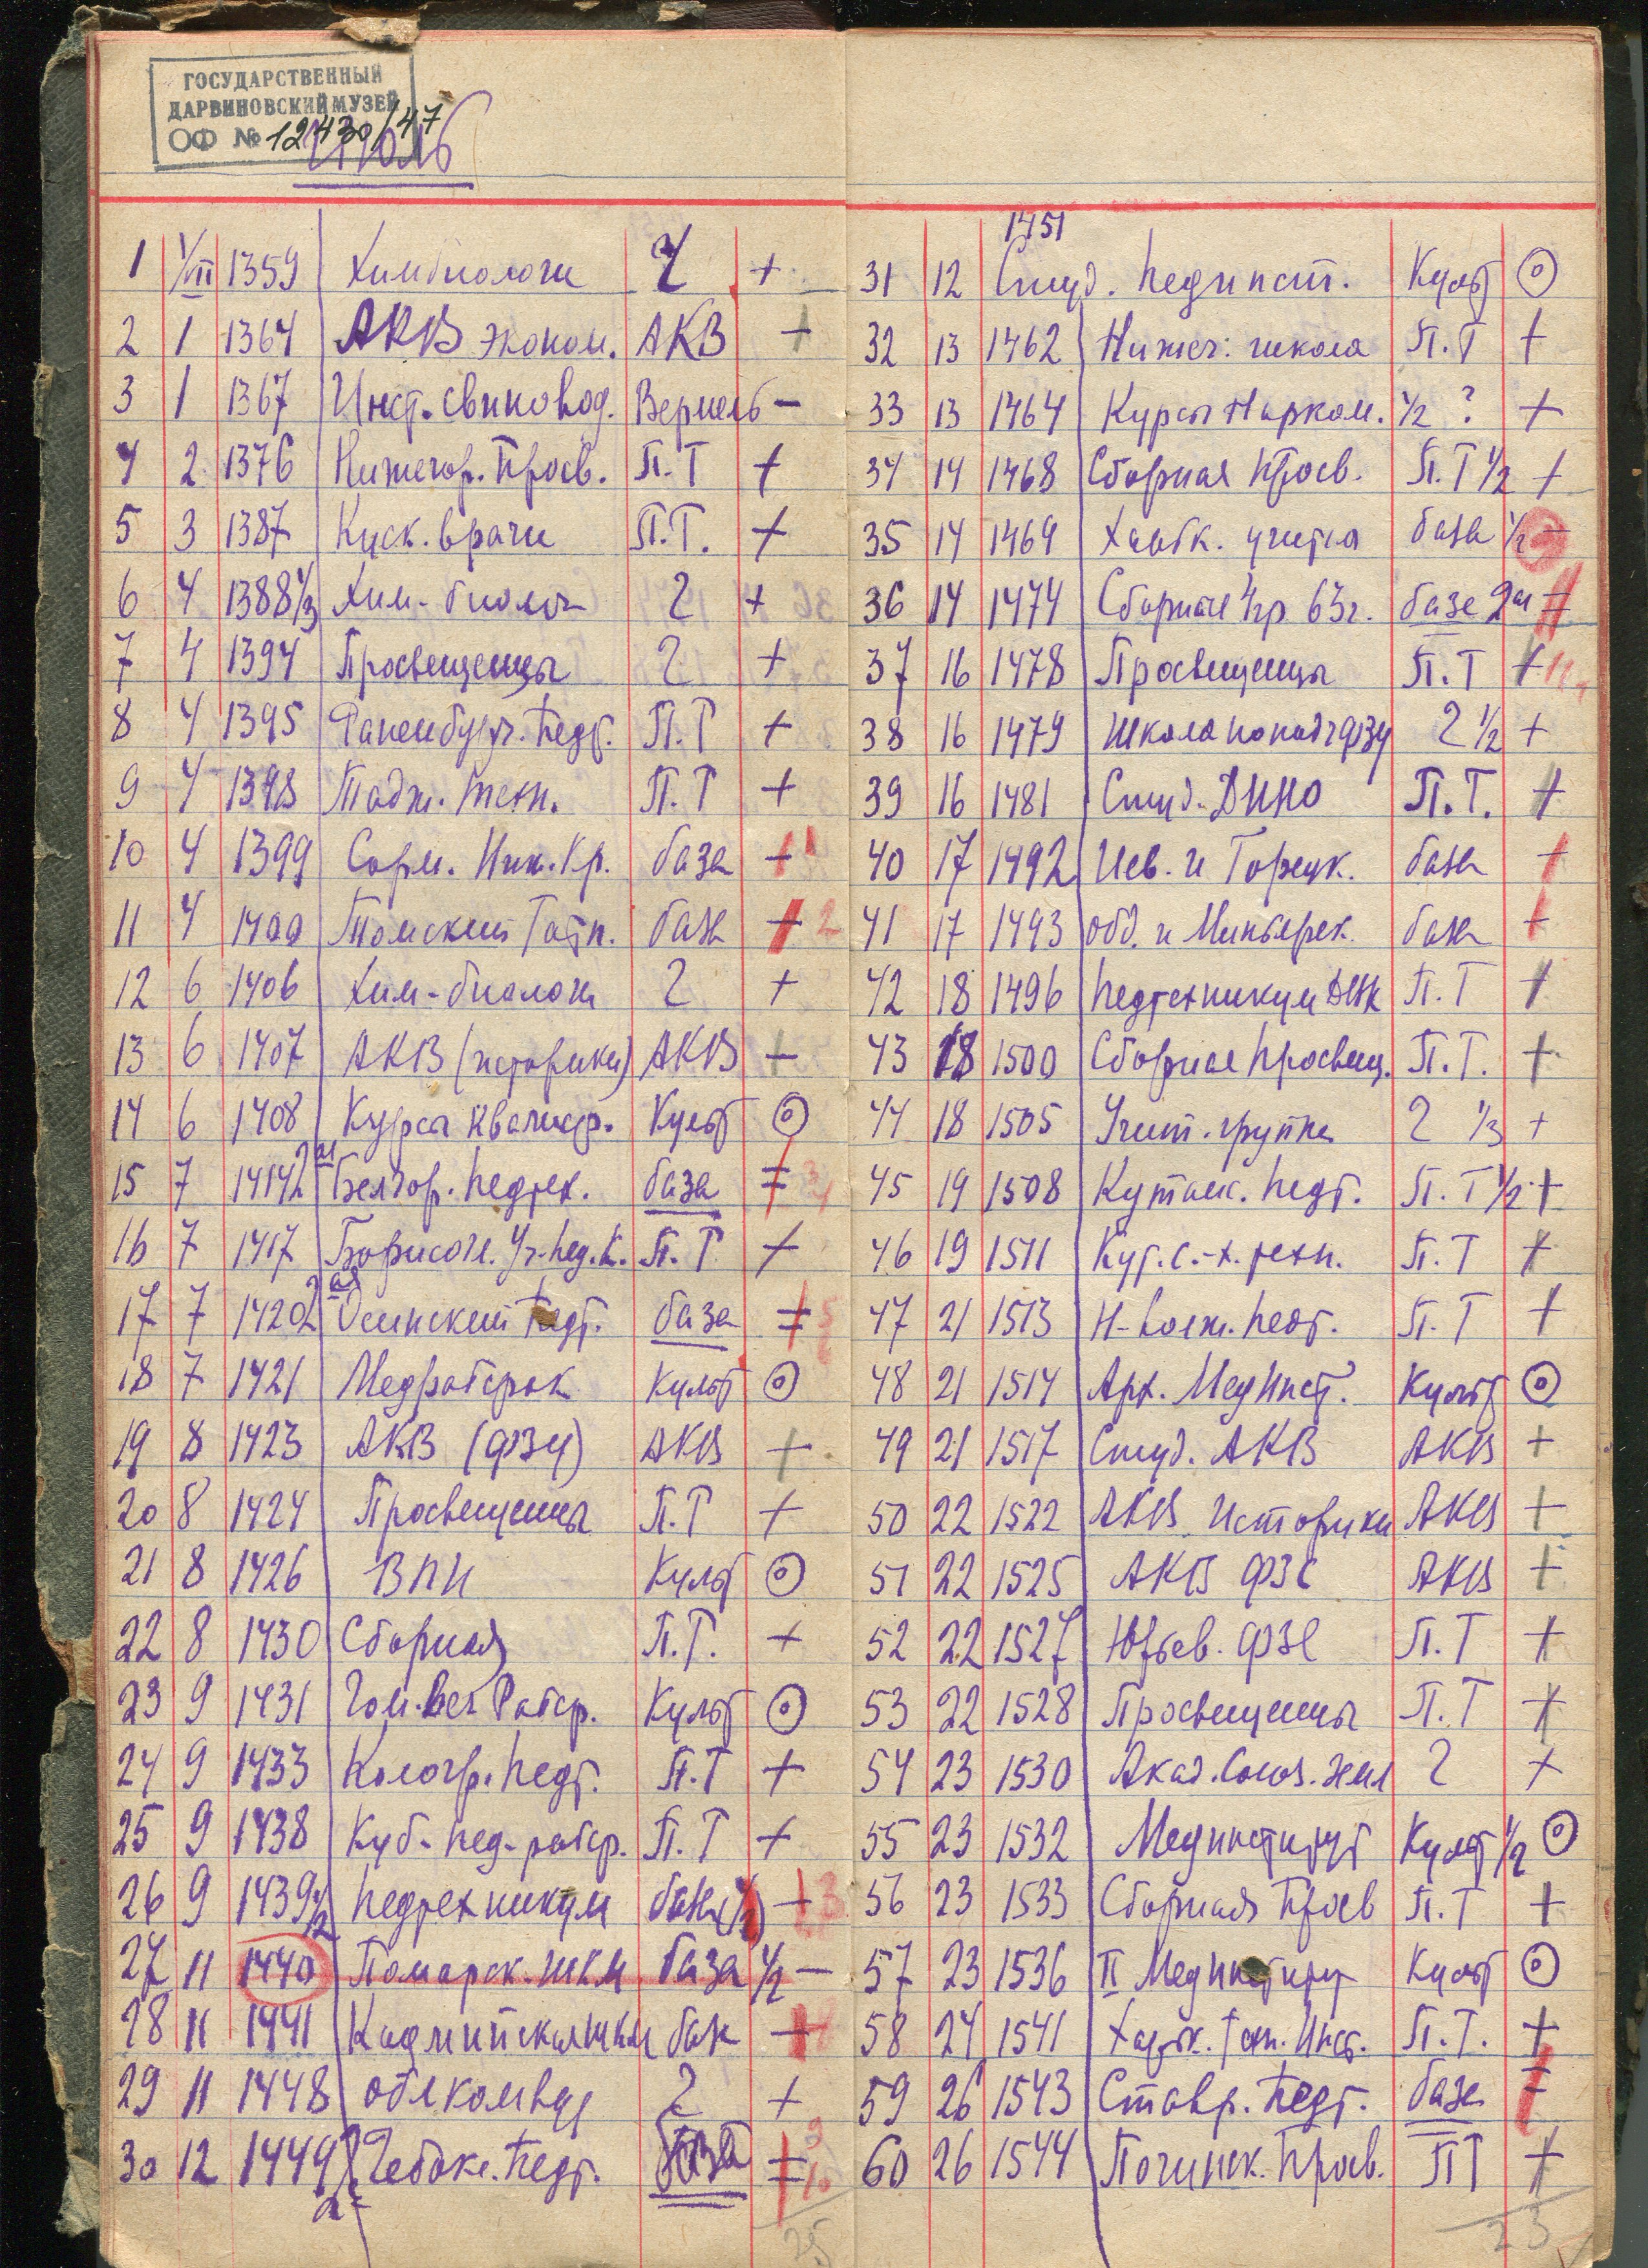 ГОСУДАРСТВЕННЫЙ
ДАРВИНОВСКИЙ МУЗЕЙ
ОФ № 12430/47
Июль
1 1/VII 1359 Химбиологи +
2 1 1364 АКВ эконом. АКВ +
3 1 1367 Инст. свиновод. –
4 2 1376 Нижегор. Просв. П.Т +
5 3 1387 врачи П.Т. +
6 4 1388 1/3 Хим-биолог 2 +
7 4 1394 Просвещенцы 2 +
8 4 1395 Педт. П.Т +
9 4 1398 Тадж. техн. П.Т +
10 4 1399 Сорм. Кр. база + 1
11 4 1400 Томский база + 2
12 6 1406 Хим-биологи 2 +
13 6 1407 АКВ (историки) АКВ +
14 6 1408 Курсы квалиф. Культ ⊙
15 7 1414 2 ая Белгор. педтех. база = 3 4
16 7 1417 Борисогл. Уч-пед.к. П.Т +
17 7 1420 2 ая Осинский педт. база = 5 6
18 7 1421 Медрабфак Культ ⊙
19 8 1423 АКВ (ФЗУ) АКВ +
20 8 1424 Просвещенцы П.Т +
21 8 1426 ВПИ Культ ⊙
22 8 1430 Сборная П.Т. +
23 9 1431 Гом. Вет Рабф. Культ ⊙
24 9 1433 Кологр. педт. П.Т +
25 9 1438 Куб-пед-рабф. П.Т +
26 9 1439 1/2 Педтехникум база (1/2) +
27 11 1440 Помарск. ШКМ база 1/2 –
28 11 1441 база +
29 11 1448 2 +
30 12 1449 2 Чебокс. педт. база = 9 10
25
1451
31 12 Студ. пединст. Культ ⊙
32 13 1462 школа П.Т +
33 13 1464 Курсы Нарком. 1/2 ? +
34 14 1468 Сборная Просв. П.Т 1/2 +
35 14 1469 учителя база 1/2 –
36 14 1474 Сборная гр. 63 г. базе 2 ая =
37 16 1478 Просвещенцы П.Т +
38 16 1479 Школа ФЗУ 2 1/2 +
39 16 1481 Студ. ДИНО П.Т. +
40 17 1492 и Горецк. база +
41 17 1493 и база +
42 18 1496 Педтехникум П.Т +
43 18 1500 Сборная Просвещ. П.Т. +
44 18 1505 Учит. группа 2 1/3 +
45 19 1508 Кутаис. педт. П.Т 1/2 +
46 19 1511 Кут. с.-х. техн. П.Т +
47 21 1513 Н-Волж. педт. П.Т +
48 21 1514 Арх. Мединст. Культ ⊙
49 21 1517 Студ. АКВ АКВ +
50 22 1522 АКВ Историки АКВ +
51 22 1525 АКВ ФЗС АКВ +
52 22 1527 Юрьев. ФЗС П.Т +
53 22 1528 Просвещенцы П.Т +
54 23 1530 Акад. Соц. Зем 2 +
55 23 1532 Мединститут Культ 1/2 ⊙
56 23 1533 Сборная Просв П.Т +
57 23 1536 II Мединститут Культ ⊙
58 24 1541 Харьк. Техн. Инст. П.Т. +
59 26 1543 Ставр. педт. база =
60 26 1544 Починск. Просв. ПТ +
23